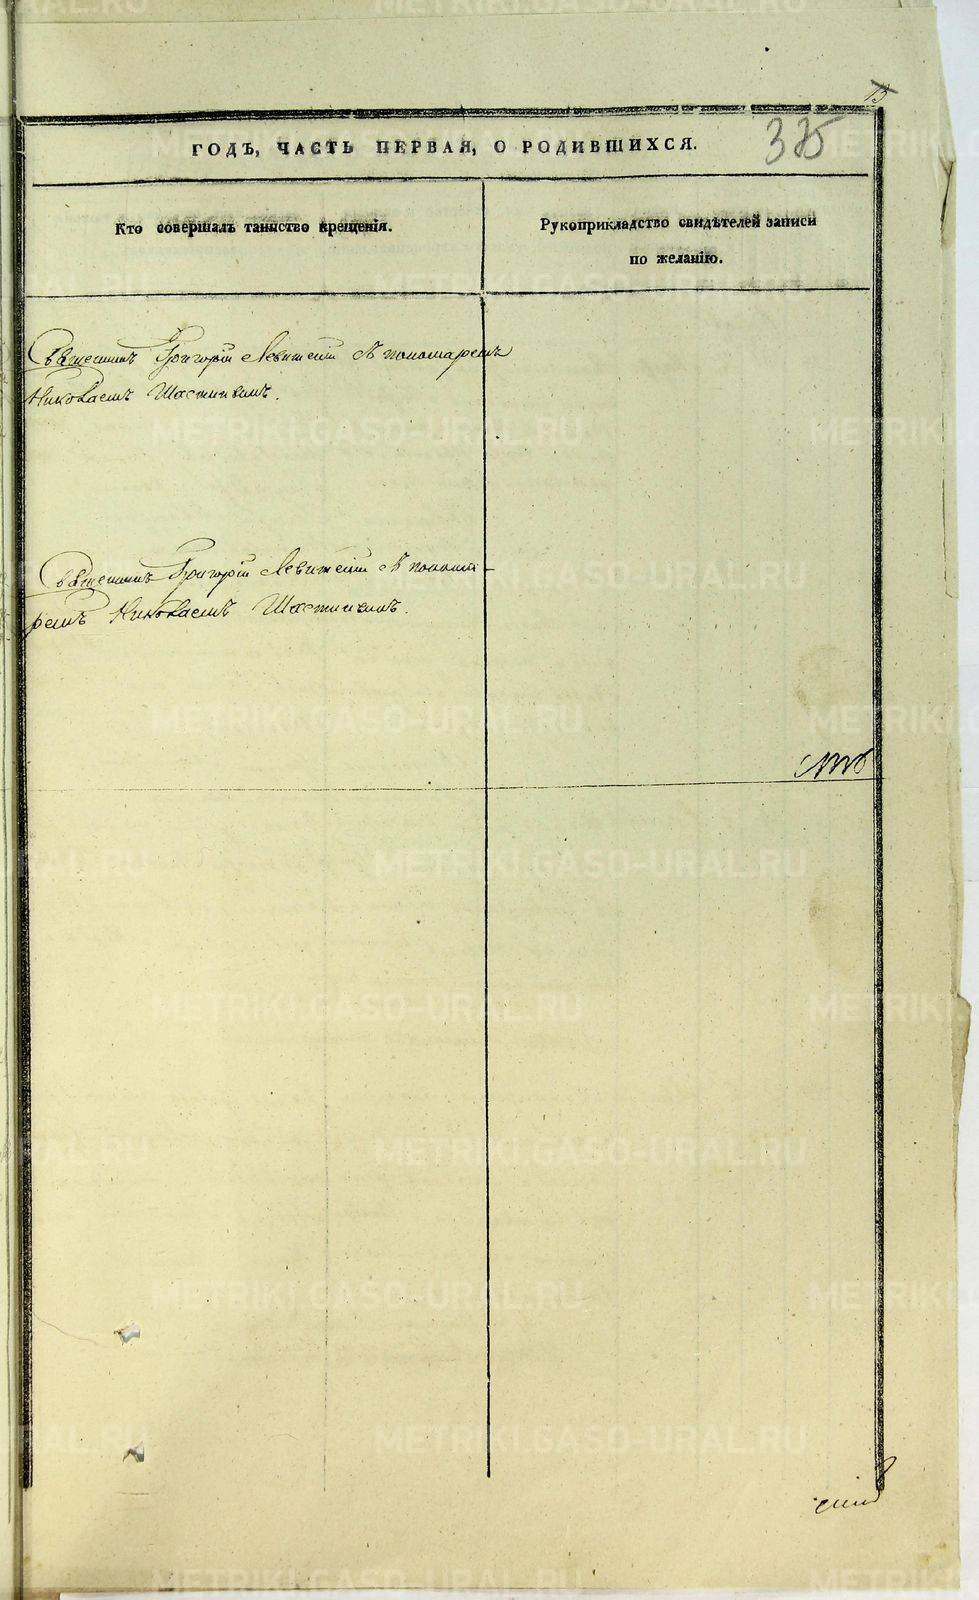 375
ГОДЪ, ЧАСТЬ ПЕРВАЯ, О РОДИВШИХСЯ.
Кто совершалъ таинство крещенія.
Рукоприкладство свидѣтелей записи
по желанію.
Священникъ Григорій Левитскій съ пономаремъ
Николаемъ
Священникъ Григорій Левитскій съ понома-
ремъ Николаемъ
METRIKI.GASO-URAL.RU